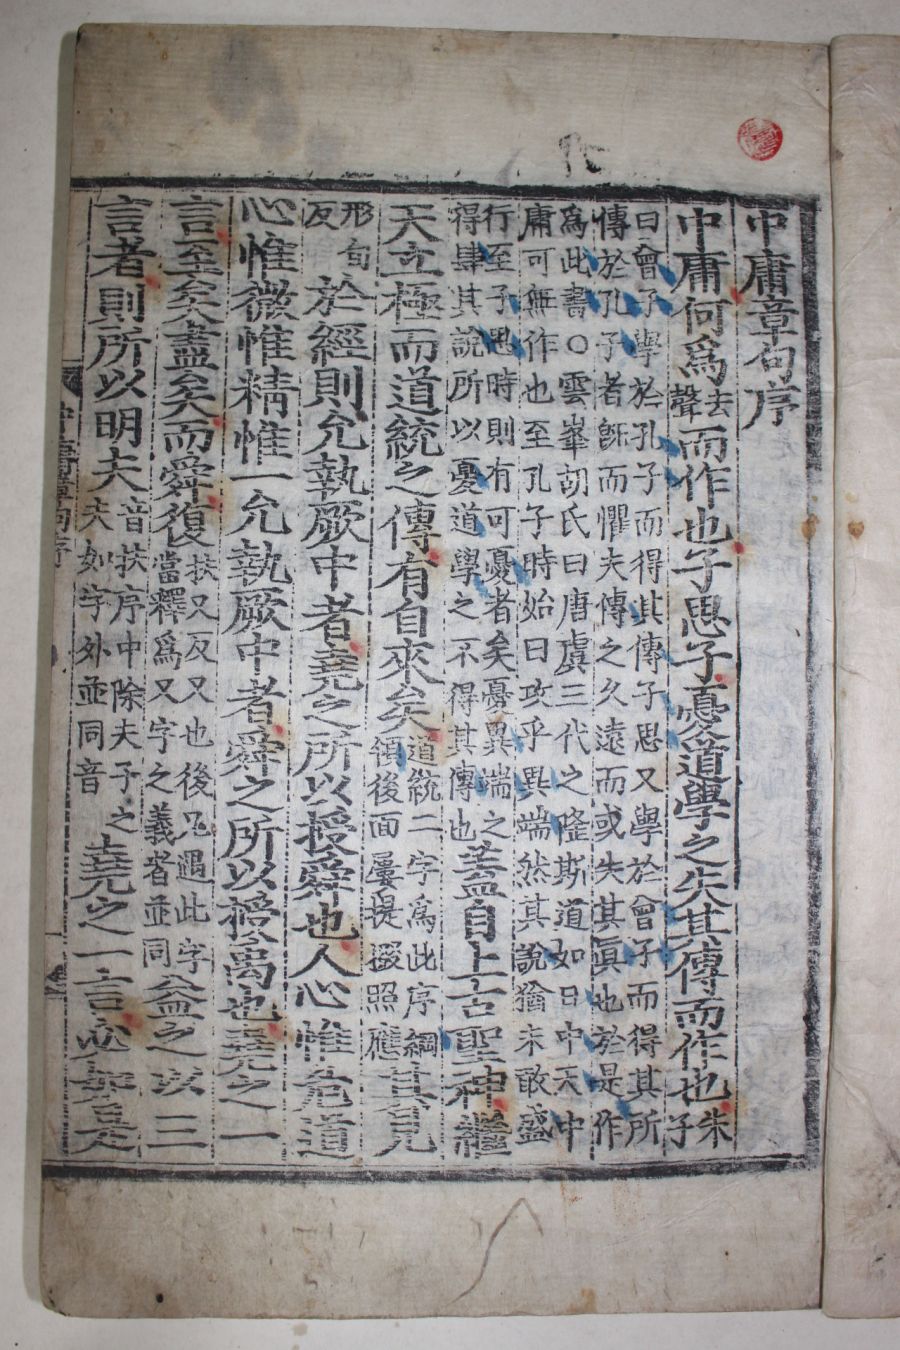 中庸章句序
中庸何爲去聲而作也子思子憂道學之失其傳而作也朱子
曰曾子學於孔子而得其傳子思又學於曾子而得其所
傳於孔子者旣而懼夫傳之久遠而或失其眞也於是作
爲此書○雲峯胡氏曰唐虞三代之隆斯道如日中天中
庸可無作也至孔子時始曰攻乎異端然其說猶未敢盛
行至子思時則有可憂者矣憂異端之
得肆其說所以憂道學之不得其傳也
蓋自上古聖神繼
天立極而道統之傳有自來矣道統二字爲此序綱領後面屢提掇照應其見
形甸反於經則允執厥中者堯之所以授舜也人心惟危道
心惟微惟精惟一允執厥中者舜之所以授禹也堯之一
言至矣盡矣而舜復扶又反又也後凡遇此字當釋爲又字之義者並同益之以三
言者則所以明夫音扶序中除夫子之夫如字外並同音堯之一言必如是